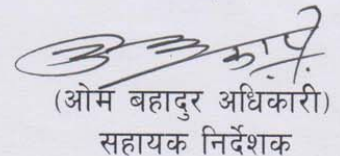 (ओम बहादुर अधिकारी)
सहायक निर्देशक